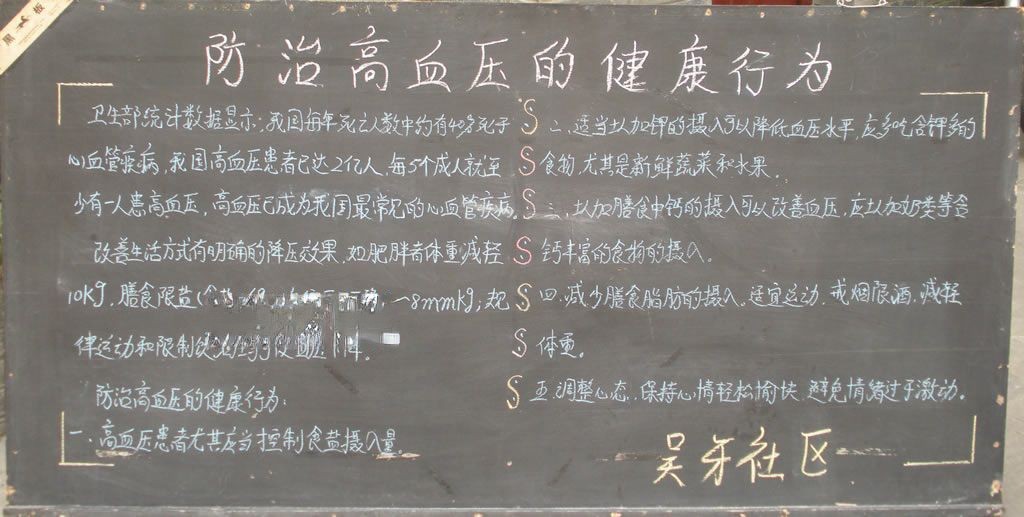 黑板
防治高血压的健康行为
卫生部统计数据显示:我国每年死亡人数中约有40%死于
心血管疾病,我国高血压患者已达2亿人,每5个成人就至
少有一人患高血压,高血压已成为我国最常见的心血管疾病,
改善生活方式有明确的降压效果,如肥胖者体重减轻
10kg,膳食限盐 —8mmkg;规
律运动和限制 下降。
防治高血压的健康行为:
一、高血压患者尤其应当控制食盐摄入量。
二、适当增加钾的摄入可以降低血压水平,应多吃含钾多的
食物,尤其是新鲜蔬菜和水果。
三、增加膳食中钙的摄入可以改善血压,应增加奶类等含
钙丰富的食物的摄入。
四、减少膳食脂肪的摄入,适宜运动,戒烟限酒,减轻
体重。
五、调整心态,保持心情轻松愉快,避免情绪过于激动。
吴牙社区